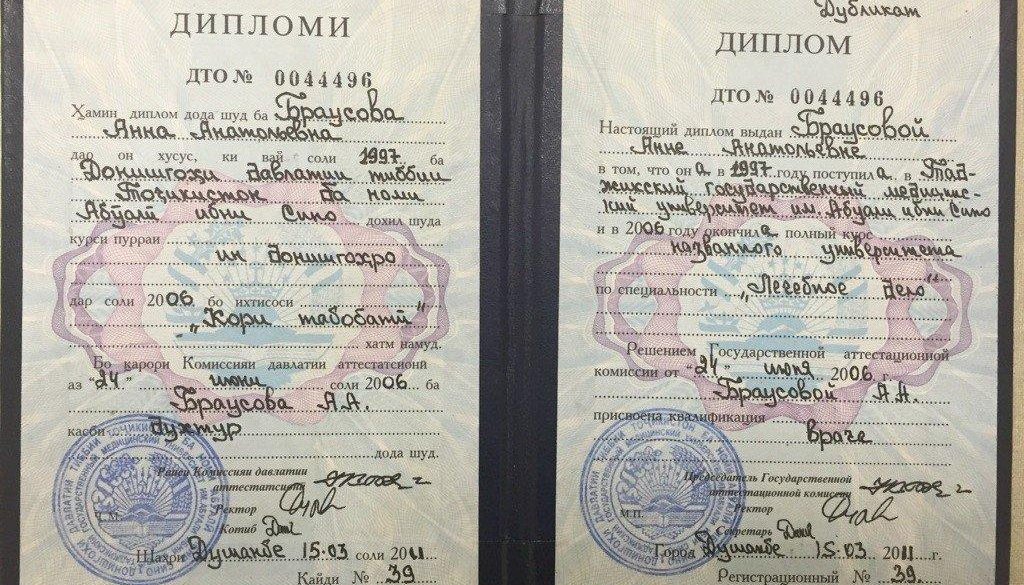 ДИПЛОМИ
ДТО № 0044496
Ҳамин диплом дода шуд ба Браусова
Анна Анатольевна
дар он хусус, ки вай соли 1997 ба
Донишгоҳи давлатии тиббии
Тоҷикистон ба номи
Абӯалӣ ибни Сино дохил шуда
курси пурраи
ин донишгоҳро
дар соли 2006 бо ихтисоси
„Кори табобатӣ"
хатм намуд.
Бо қарори Комиссияи давлатии аттестатсионӣ
аз "24" июни соли 2006 ба
Браусова А.А.
касби духтур
дода шуд.
Раиси Комиссияи давлатии
аттестатсионӣ
Ректор
Котиб
Шаҳри Душанбе 15.03 соли 2011
Қайди № 39
Дубликат
ДИПЛОМ
ДТО № 0044496
Настоящий диплом выдан Браусовой
Анне Анатольевне
в том, что он а в 1997 году поступил а в Тад-
жикский государственный медицинс-
кий университет им. Абуали ибни Сино
и в 2006 году окончил а полный курс
названного университета
по специальности „Лечебное дело"
Решением Государственной аттестационной
комиссии от "24" июня 2006 г.
Браусовой А.А.
присвоена квалификация
врача
Председатель Государственной
аттестационной комиссии
Ректор
М.П.
Секретарь
Город Душанбе 15.03 2011 г.
Регистрационный № 39